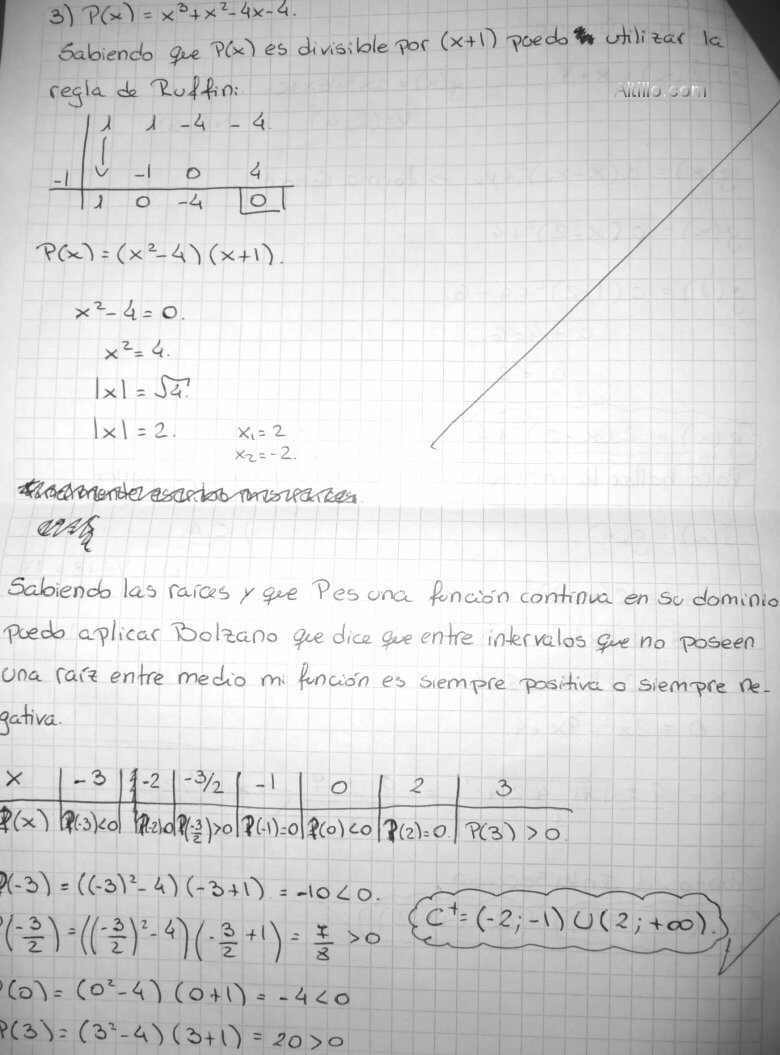 3) P(x) = x³+x²-4x-4.
Sabiendo que P(x) es divisible por (x+1) puedo utilizar la
regla de Ruffin:
Altillo.com
1 1 -4 -4
-1 -1 0 4
1 0 -4 0
P(x) = (x²-4)(x+1).
x²-4=0.
x²=4.
|x| = √4.
|x| = 2. x₁=2
x₂=-2.
Sabiendo las raíces y que P es una función continua en su dominio
puedo aplicar Bolzano que dice que entre intervalos que no poseen
una raíz entre medio mi función es siempre positiva o siempre ne-
gativa.
x | -3 | -2 | -3/2 | -1 | 0 | 2 | 3
P(x) | P(-3)<0 | P(-2)=0 | P(-3/2)>0 | P(-1)=0 | P(0)<0 | P(2)=0 | P(3)>0
P(-3) = ((-3)²-4)(-3+1) = -10<0.
P(-3/2) = ((-3/2)²-4)(-3/2+1) = 7/8 >0
C⁺=(-2;-1)∪(2;+∞).
P(0) = (0²-4)(0+1) = -4<0
P(3) = (3²-4)(3+1) = 20>0